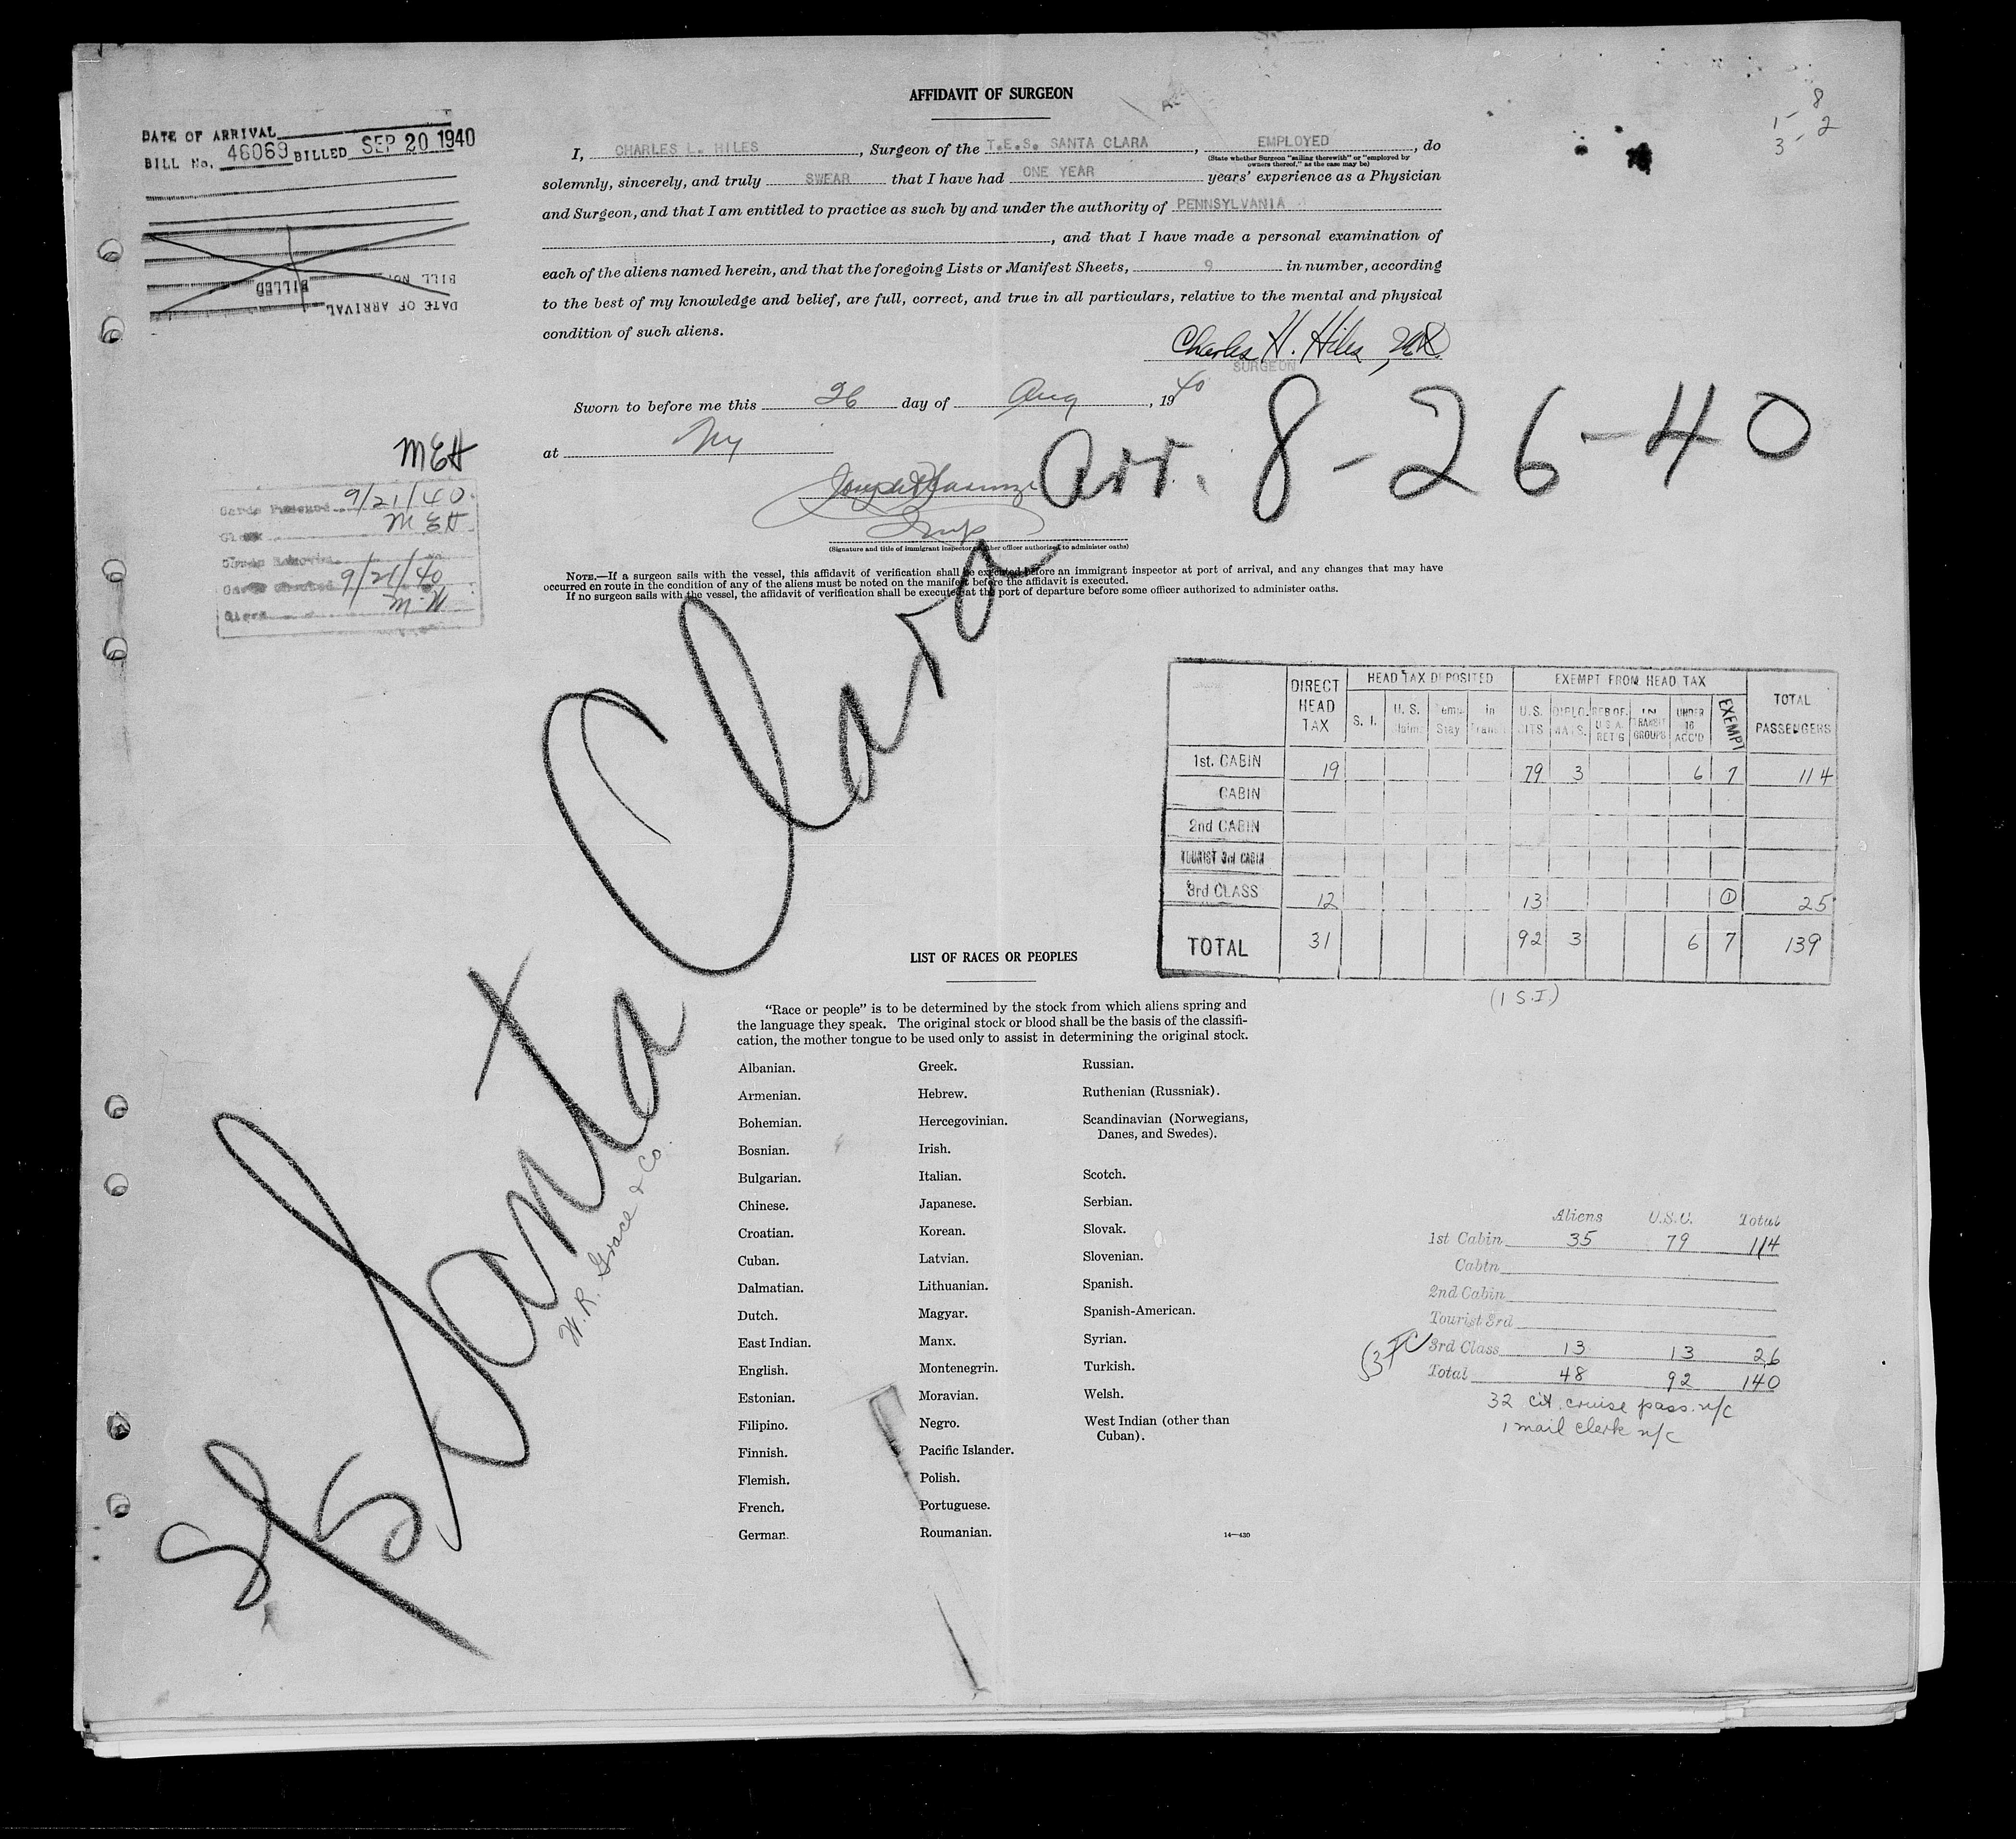 AFFIDAVIT OF SURGEON
DATE OF ARRIVAL
BILL No. 46069 BILLED SEP 20 1940
I, CHARLES L. HILES, Surgeon of the T.E.S. SANTA CLARA, EMPLOYED, do
(State whether Surgeon "sailing therewith" or "employed by owners thereof," as the case may be)
solemnly, sincerely, and truly SWEAR that I have had ONE YEAR years' experience as a Physician
and Surgeon, and that I am entitled to practice as such by and under the authority of PENNSYLVANIA
, and that I have made a personal examination of
each of the aliens named herein, and that the foregoing Lists or Manifest Sheets, 9 in number, according
to the best of my knowledge and belief, are full, correct, and true in all particulars, relative to the mental and physical
condition of such aliens.
BILL No. BILLED
DATE OF ARRIVAL
8
1 -
3 - 2
Charles H. Hiles, M.D.
SURGEON
Sworn to before me this 26 day of Aug, 1940
at NY
Arr. 8-26-40
Insp
(Signature and title of immigrant inspector or other officer authorized to administer oaths)
MEH
9/21/40
MEH
Clerk
9/21/40
M.W
NOTE.—If a surgeon sails with the vessel, this affidavit of verification shall be executed before an immigrant inspector at port of arrival, and any changes that may have
occurred en route in the condition of any of the aliens must be noted on the manifest before the affidavit is executed.
If no surgeon sails with the vessel, the affidavit of verification shall be executed at the port of departure before some officer authorized to administer oaths.
S/S Santa Clara
W. R. Grace & Co.
DIRECT HEAD TAX | HEAD TAX DEPOSITED | EXEMPT FROM HEAD TAX | TOTAL PASSENGERS
S. I. | U. S. | Temp Stay | in Transit | U.S. CITS | DIPLO. MATS. | RES OF. U.S.A. RET'G | IN TRANSIT GROUPS | UNDER 16 ACC'D | EXEMPT
1st. CABIN 19 79 3 6 7 114
CABIN
2nd CABIN
TOURIST 3rd CABIN
3rd CLASS 12 13 ① 25
TOTAL 31 92 3 6 7 139
(1 S.I.)
LIST OF RACES OR PEOPLES
"Race or people" is to be determined by the stock from which aliens spring and
the language they speak. The original stock or blood shall be the basis of the classifi-
cation, the mother tongue to be used only to assist in determining the original stock.
Albanian.
Armenian.
Bohemian.
Bosnian.
Bulgarian.
Chinese.
Croatian.
Cuban.
Dalmatian.
Dutch.
East Indian.
English.
Estonian.
Filipino.
Finnish.
Flemish.
French.
German.
Greek.
Hebrew.
Hercegovinian.
Irish.
Italian.
Japanese.
Korean.
Latvian.
Lithuanian.
Magyar.
Manx.
Montenegrin.
Moravian.
Negro.
Pacific Islander.
Polish.
Portuguese.
Roumanian.
Russian.
Ruthenian (Russniak).
Scandinavian (Norwegians,
Danes, and Swedes).
Scotch.
Serbian.
Slovak.
Slovenian.
Spanish.
Spanish-American.
Syrian.
Turkish.
Welsh.
West Indian (other than
Cuban).
14—430
Aliens U.S.C. Total
1st Cabin 35 79 114
Cabin
2nd Cabin
Tourist 3rd
3rd Class 13 13 26
Total 48 92 140
32 cit. cruise pass. n/c
1 mail clerk n/c